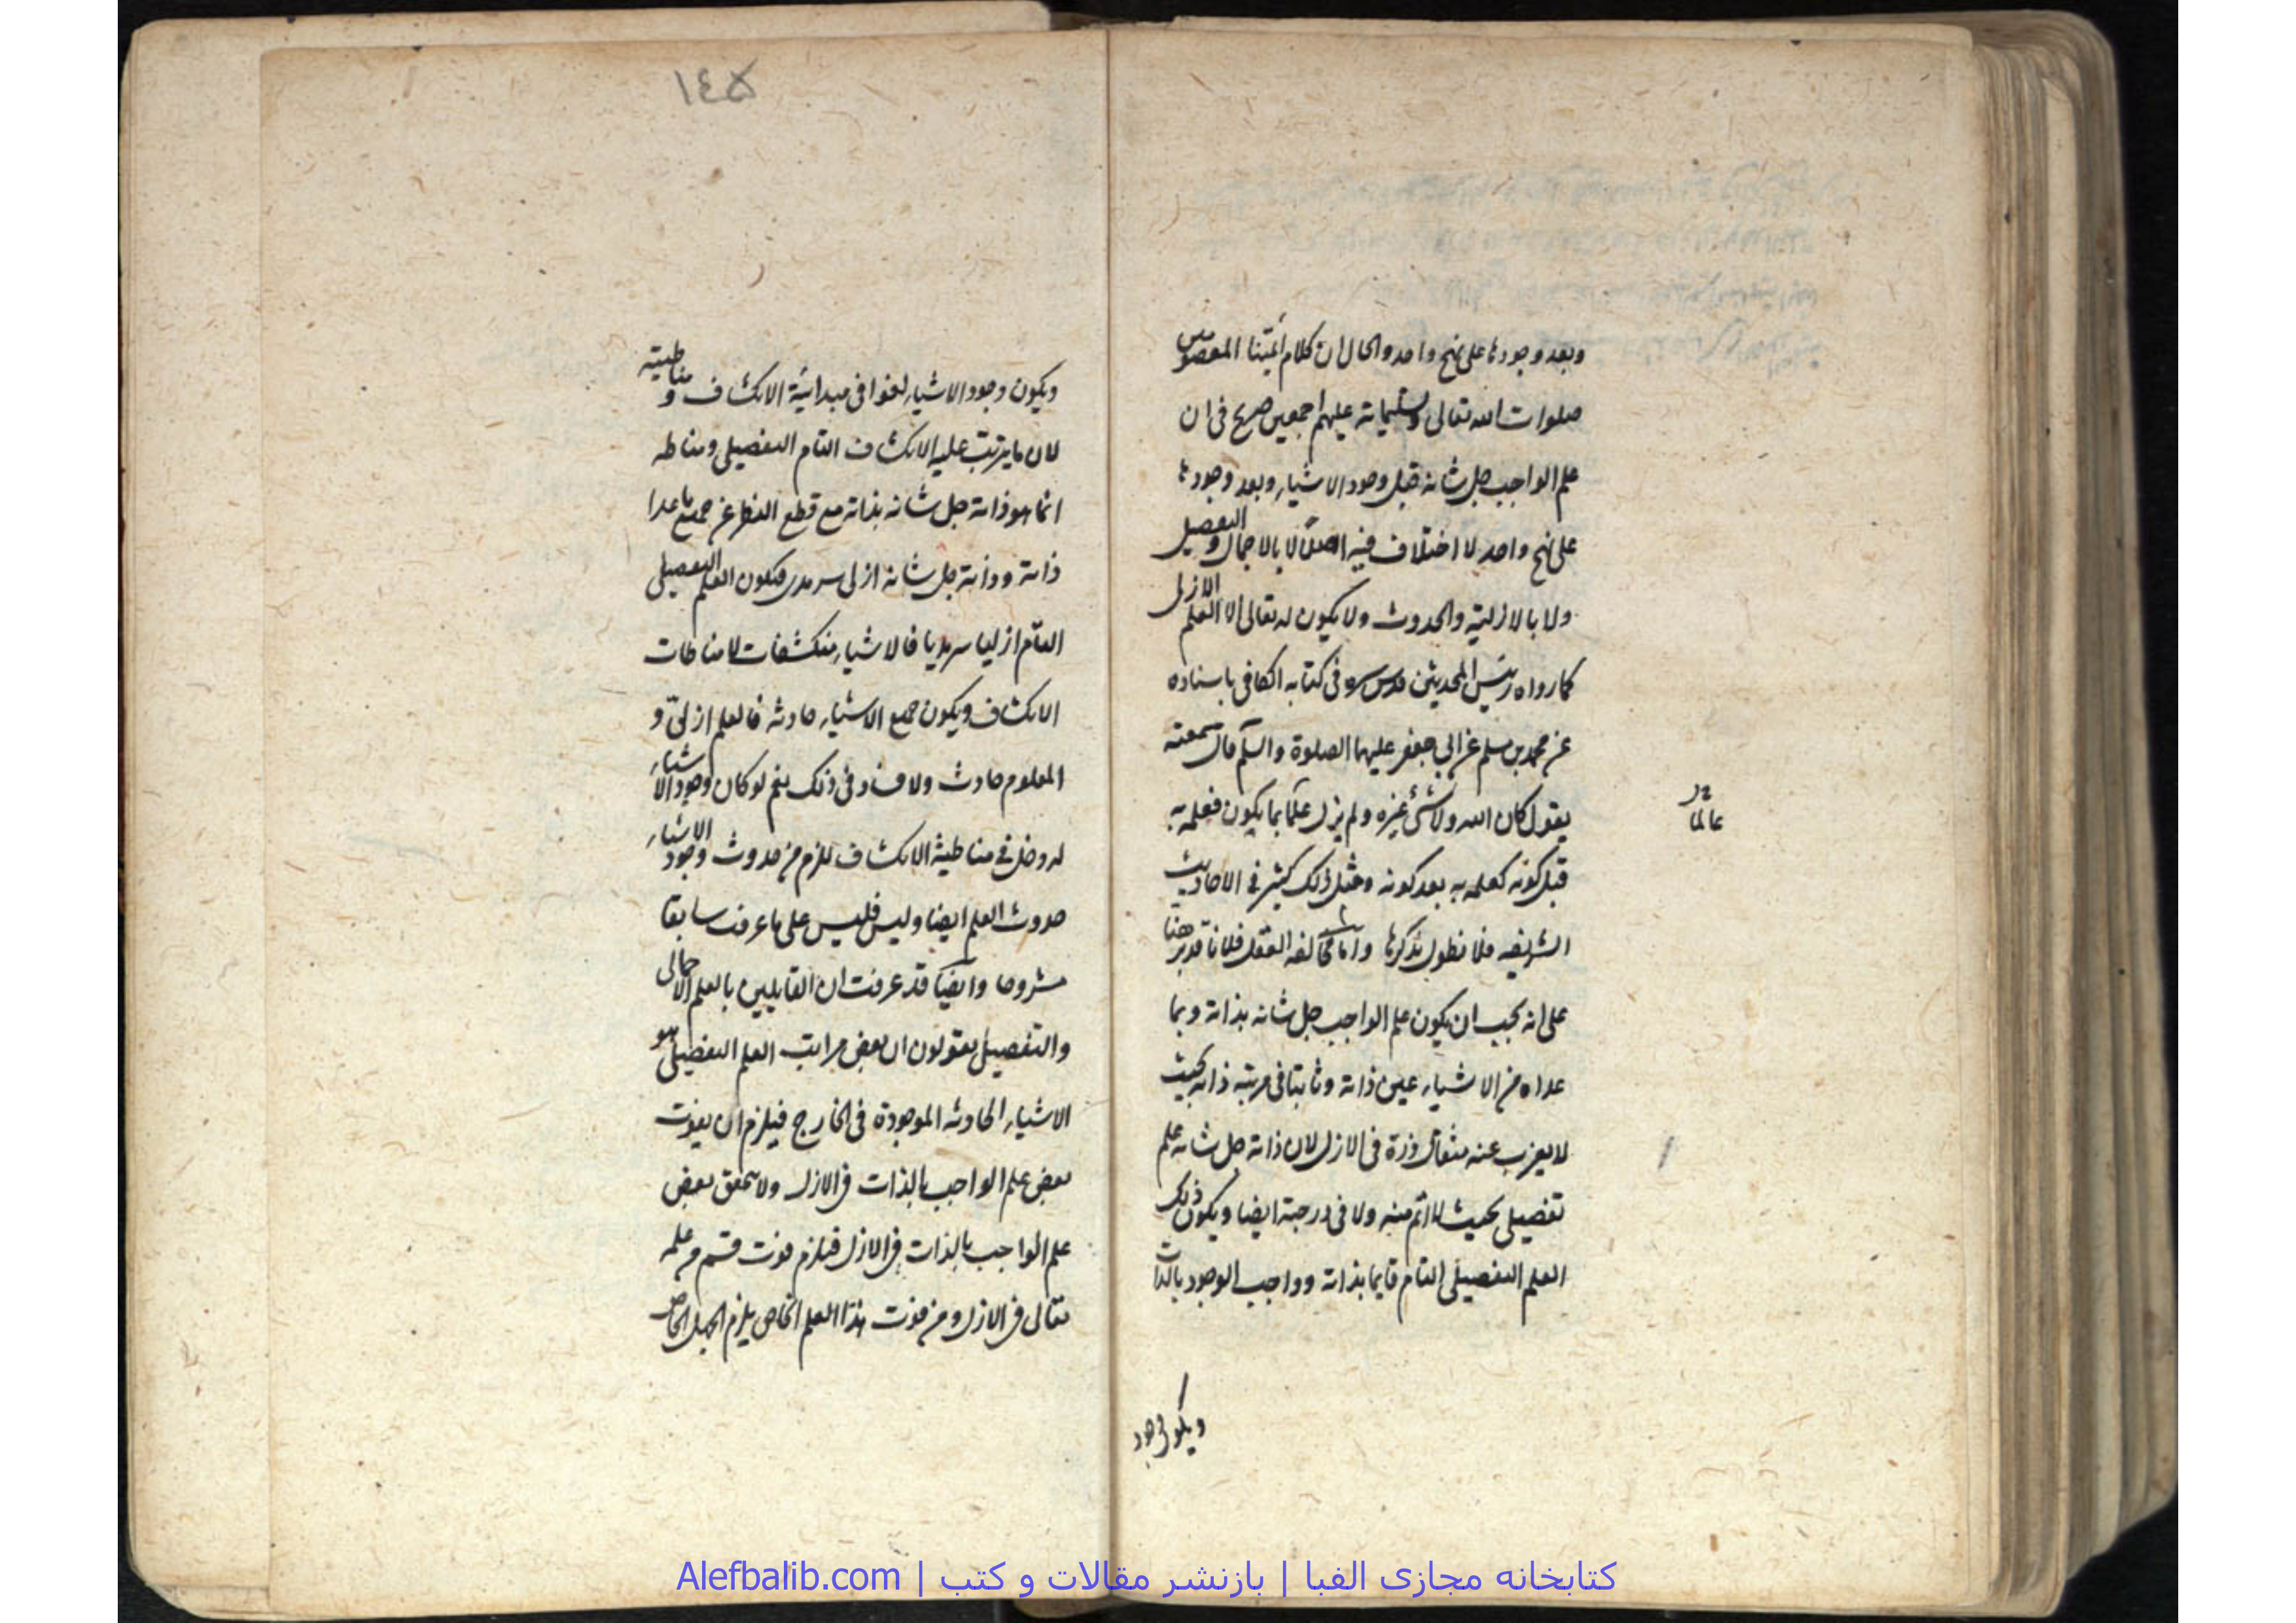 وبعد وجودها على نهج واحد والحال ان كلام أئمتنا المعصومين
صلوات الله تعالى وتسليماته عليهم اجمعين صريح فى ان
علم الواجب جل شانه قبل وجود الاشياء وبعد وجودها
على نهج واحد لا اختلاف فيه اصلًا لا بالاجمال والتفصيل
ولا بالازلية والحدوث ولا يكون له تعالى الا العلم الازلى
كما رواه رئيس المحدثين قدس سره فى كتابه الكافى باسناده
عن محمد بن مسلم عن ابي جعفر عليهما الصلوة والسلم قال سمعته
يقول كان الله ولا شئ غيره ولم يزل عالمًا بما يكون فعلمه به
عالما
قبل كونه كعلمه به بعد كونه ومثل ذلك كثير فى الاحاديث
الشريفه فلا نطول بذكرها وأما مخالفه العقل فلانا قد برهنا
على انه يجب ان يكون علم الواجب جل شانه بذاته وبما
عداه من الاشياء عين ذاته وثابتا فى مرتبة ذاته بحيث
لا يعزب عنه مثقال ذرة فى الازل لان ذاته جل شانه علم
تفصيلى بحيث لا اتم منه ولا فى درجته ايضا ويكون ذلك
العلم التفصيلى التام قايما بذاته وواجب الوجود بالذات
ويكون وجود
١٤۵
ويكون وجود الاشياء لغوا فى مبدائية الانكشاف و مناطيته
لان ما يترتب عليه الانكشاف التام التفصيلى ومناطه
انما هو ذاته جل شانه بذاته مع قطع النظر عن جميع ما عدا
ذاته وذاته جل شانه ازلى سرمدى فيكون العلم التفصيلى
التام ازليا سرمديا فالاشياء منكشفات لا مناطات
الانكشاف ويكون جميع الاشياء حادثه فالعلم ازلىّ و
المعلوم حادث ولا فساد فى ذلك نعم لو كان وجود الاشياء
له دخل فى مناطية الانكشاف للزم من حدوث وجود الاشياء
حدوث العلم ايضا وليس فليس على ما عرفت سابقا
مشروحا وايضًا قد عرفت ان القايلين بالعلم الاجمالى
والتفصيلى يقولون ان بعض مراتب العلم التفصيلى هو
الاشياء الحادثه الموجودة فى الخارج فيلزم ان يفوت
بعض علم الواجب بالذات فى الازل ولا يتحقق بعض
علم الواجب بالذات فى الازل فيلزم فوت قسم من علمه
تعالى فى الازل ومن فوت هذا العلم الخاص يلزم الجهل الخاص
كتابخانه مجازی الفبا | بازنشر مقالات و کتب | Alefbalib.com